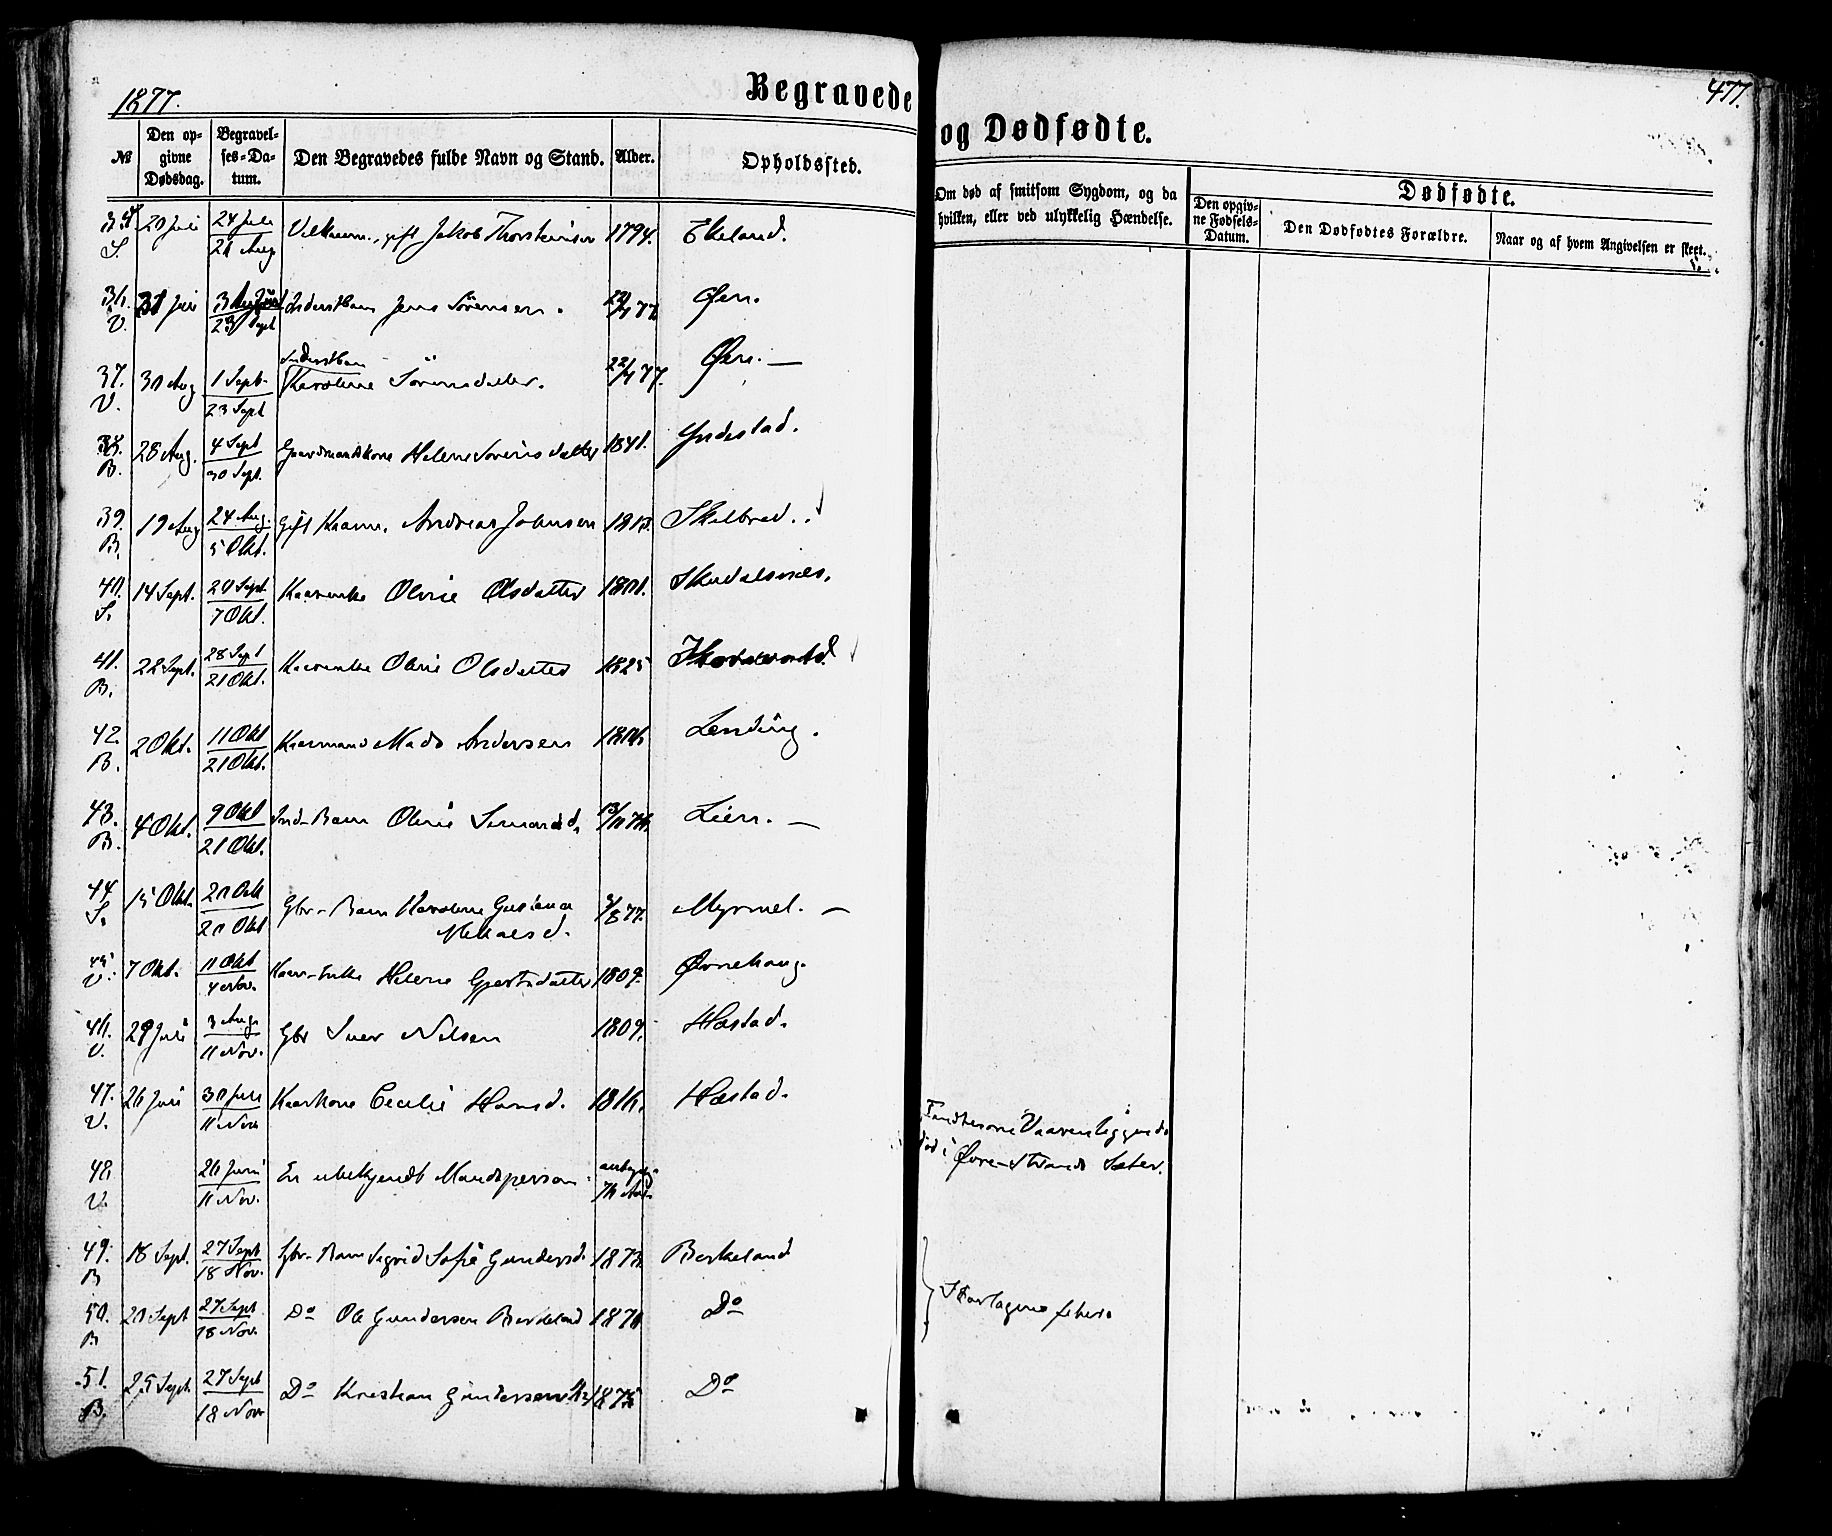 1877.
Begravede og Dødfødte.
477.
№
Den opgivne Dødsdag.
Begravelses-Datum.
Den Begravedes fulde Navn og Stand.
Alder.
Opholdssted.
Om død af smitsom Sygdom, og da hvilken, eller ved ulykkelig Hændelse.
Dødfødte.
Den opgivne Fødsels-Datum.
Den Dødfødtes Forældre.
Naar og af hvem Angivelsen er skeet.
35 S. 20 Juli 24 Juli gift Jakob 1794. Ekeland.
21 Aug.
36. V. 31 Juli 3 Inderstbarn Jens Sörensen. 22/4 77. Øen.
23 Sept
Inderstbarn
37. V. 30 Aug 1 Sept. Karoline Sörensdatter. 22/4 77. Øen. —
23 Sept
38. B. 28 Aug. 4 Sept Gaardmandskone Helene Sörensdatter 1841. Yndestad.
30 Sept.
39. B. 19 Aug 24 Aug. Gift Andreas Johnsen Skelbred.
5 Okt.
40. S. 14 Sept. 20 Sept. Kaarenke Oline Olsdatter 1801.
7 Okt.
41. B. 22 Sept. 28 Sept Kaarenke Oline Olsdatter 1825
21 Okt.
42. B. 2 Okt. 11 Okt Kaarmand Mads Andersen 1806 Lending.
21 Okt.
43. B. 4 Okt. 9 Okt Ind-Barn Oline Lien. —
21 Okt.
44. S. 15 Okt. 20 Okt Gbr-Barn Karoline 77. Myrmel. —
20 Okt Mikkelsd.
45 V. 7 Okt. 11 Okt Kaar-Enke Helene Gjertsdatter 1809. Øvrehaug.
4 Nov.
46. V. 29 Juli 3 Aug. Gbr Iver Nilsen 1809. Hæstad.
11 Nov.
47. V. 26 Juli 30 Juli Kaarkone Cecilie Hansd. 1816. Hæstad.
11 Nov
48. V. 26 Juni En ubekjendt Mandsperson.
11 Nov.
Vaaren liggende
død i Øvre-Strands Sæter.
49. B 18 Sept. 27 Sept Gbr-Barn Sigrid Sofie Gundersd. 1873. Birkeland
18 Nov.
50. B 20 Sept 27 Sept. Do Ole Gundersen Birkeland 1870 Do
18 Nov. Skarlagensfeber.
51. B. 25 Sept. 27 Sept Do Kristian Gundersen 1875 Do
18 Nov